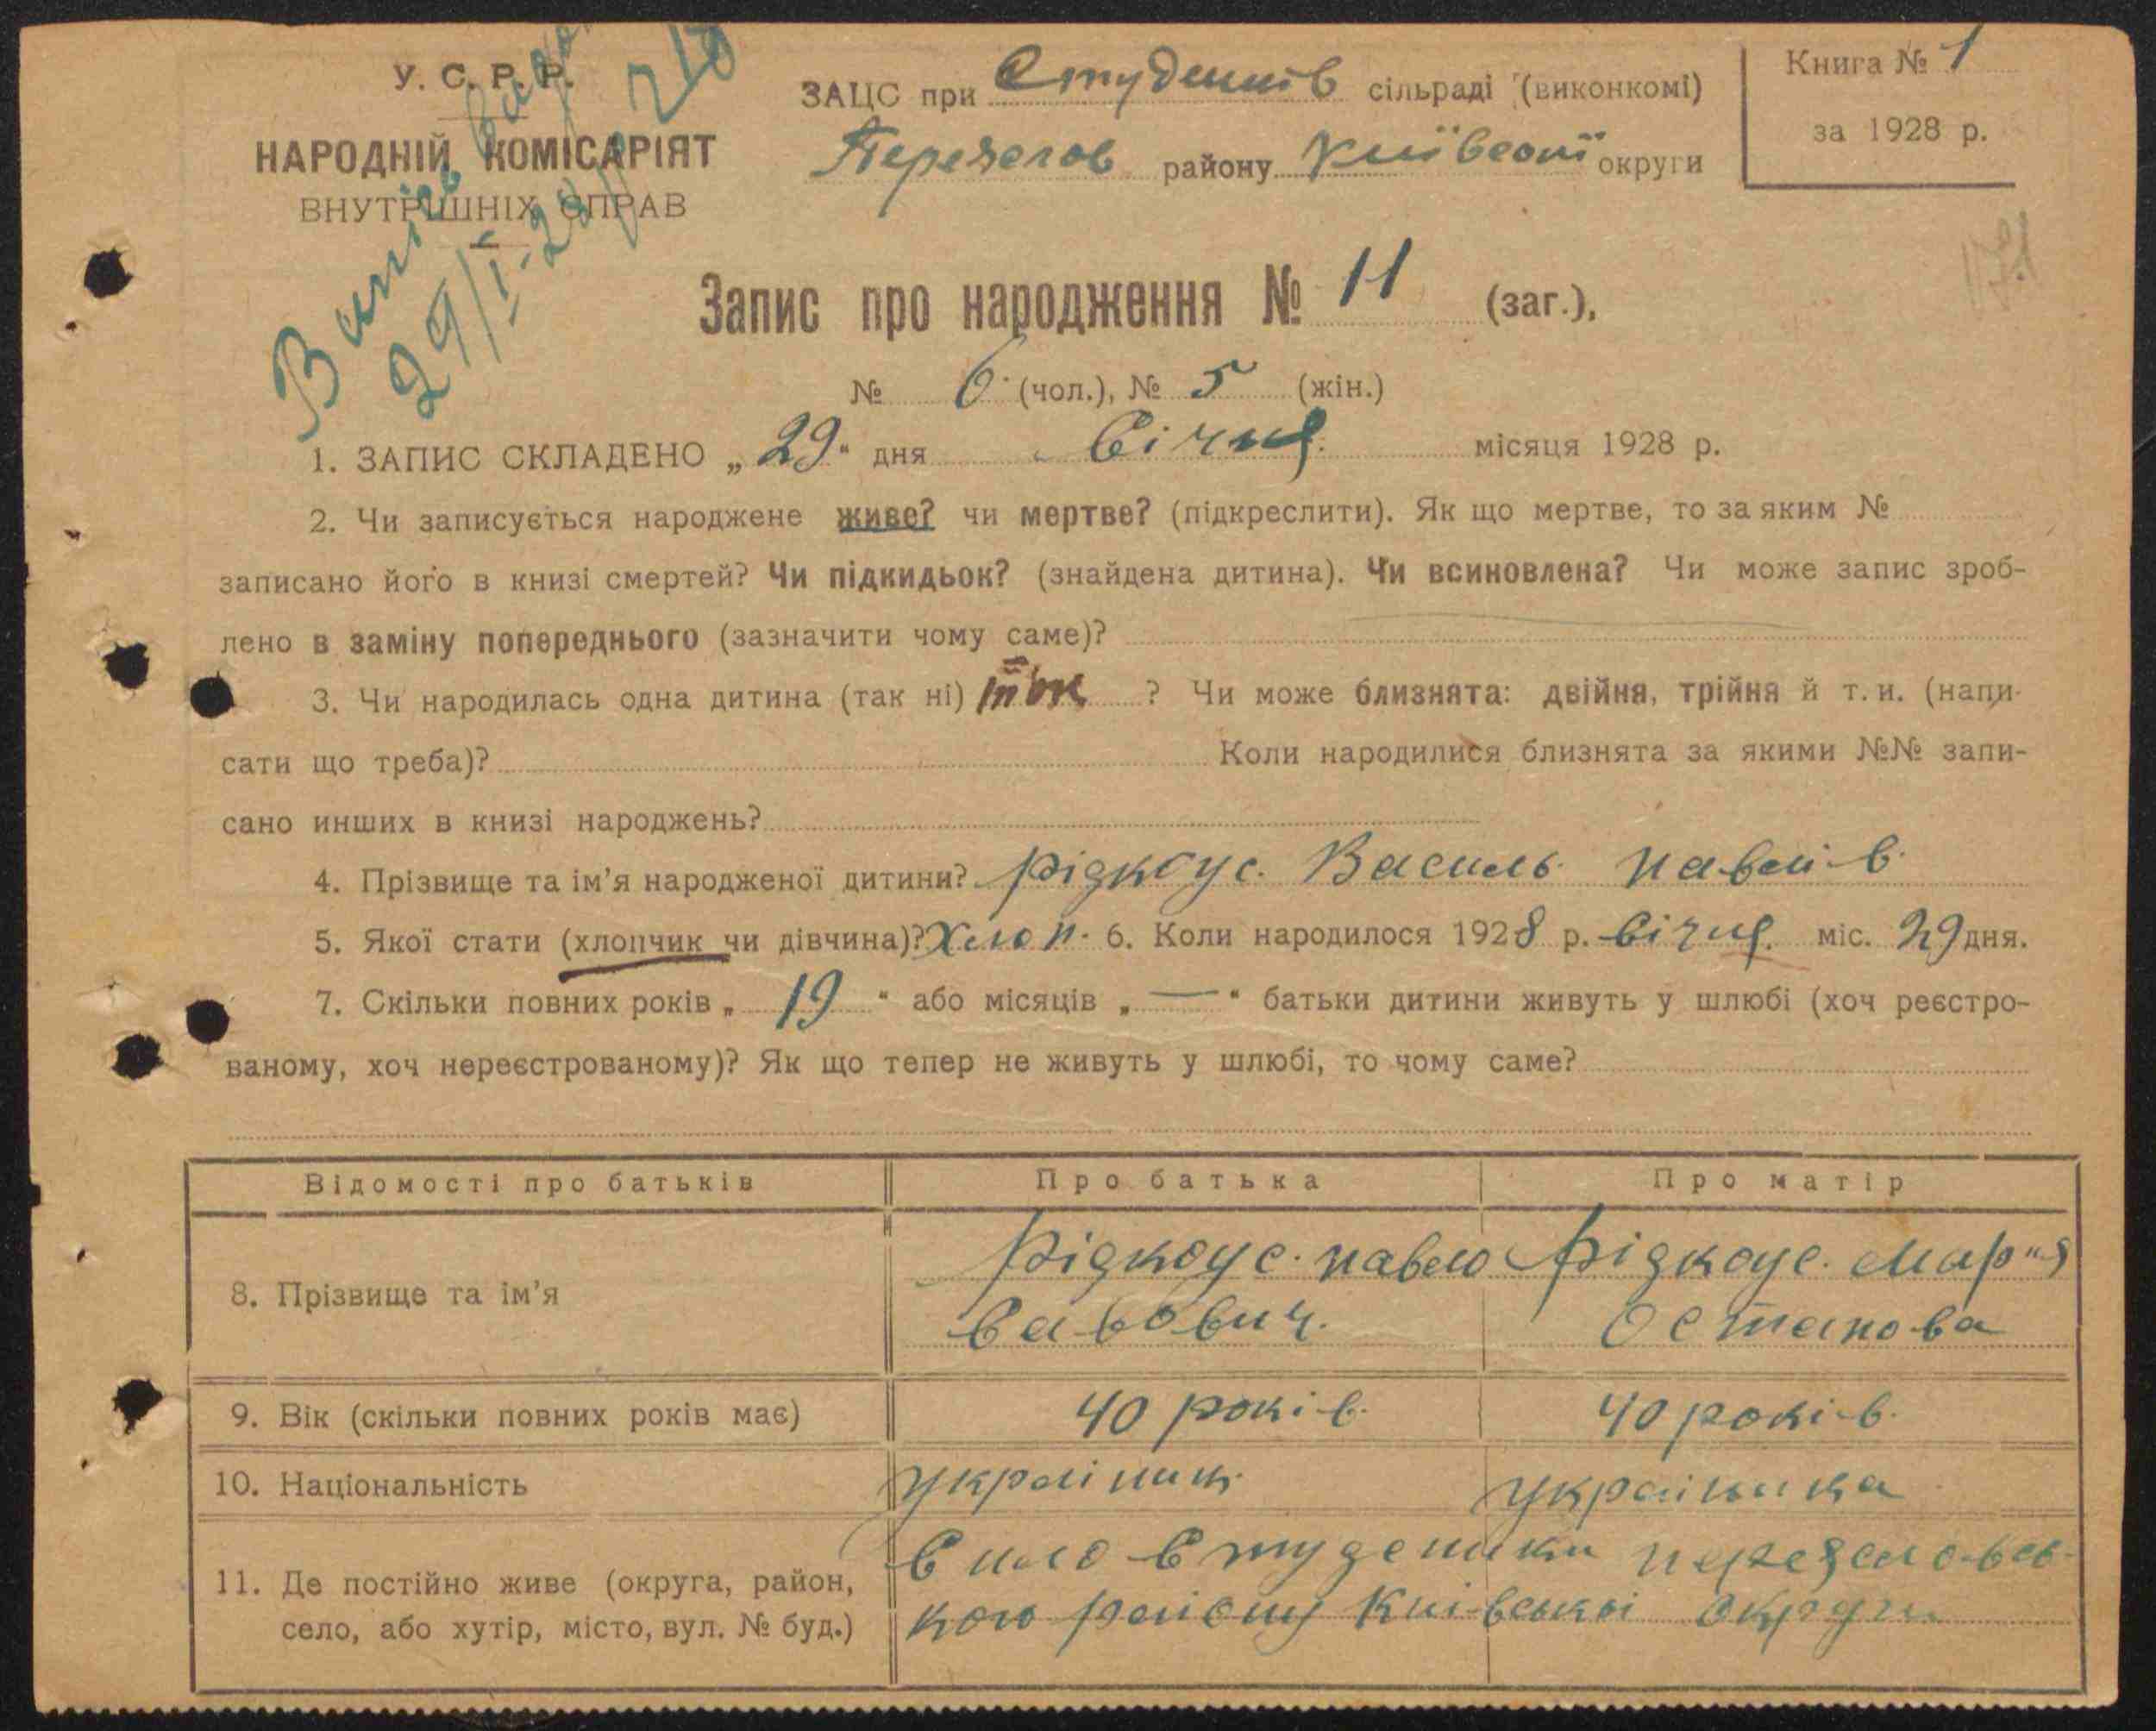 У. С. Р. Р.
НАРОДНІЙ КОМІСАРІЯТ
ВНУТРІШНІХ СПРАВ
Витяг видан
29/I-28 р.
ЗАЦС при Студенків сільраді (виконкомі)
Переяслов району Київської округи
Книга № 1
за 1928 р.
Запис про народження № 11 (заг.),
№ 6 (чол.), № 5 (жін.)
1. ЗАПИС СКЛАДЕНО „29“ дня Січня місяця 1928 р.
2. Чи записується народжене живе? чи мертве? (підкреслити). Як що мертве, то за яким №
записано його в книзі смертей? Чи підкидьок? (знайдена дитина). Чи всиновлена? Чи може запис зроб-
лено в заміну попереднього (зазначити чому саме)?
3. Чи народилась одна дитина (так ні) так ? Чи може близнята: двійня, трійня й т. и. (напи-
сати що треба)? Коли народилися близнята за якими №№ запи-
сано инших в книзі народжень?
4. Прізвище та ім’я народженої дитини? Рідкоус. Василь. Павлів.
5. Якої стати (хлопчик чи дівчина)? Хлоп. 6. Коли народилося 1928 р. Січня. міс. 29 дня.
7. Скільки повних років „ 19 “ або місяців „ — “ батьки дитини живуть у шлюбі (хоч реєстро-
ваному, хоч нереєстрованому)? Як що тепер не живуть у шлюбі, то чому саме?
Відомості про батьків Про батька Про матір
8. Прізвище та ім’я Рідкоус. Павло Рідкоус. Мар"я
Савович. Остапова
9. Вік (скільки повних років має) 40 років. 40 років.
10. Національність Україниц. Українка
11. Де постійно живе (округа, район, Студеники Переясловсь-
село, або хутір, місто, вул. № буд.) кого району Київської округи